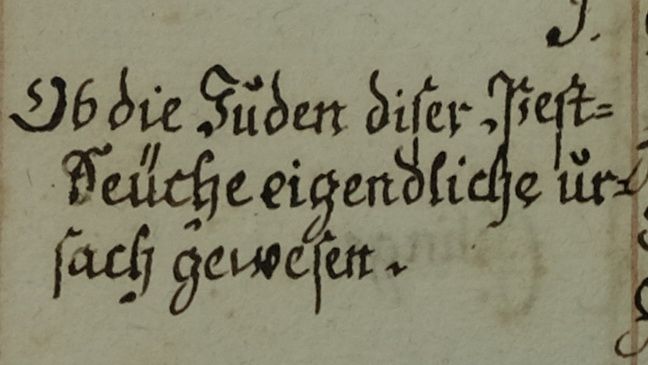 J.
Ob die Juden diser Pest=
Seüche eigendliche ur=
sach gewesen.